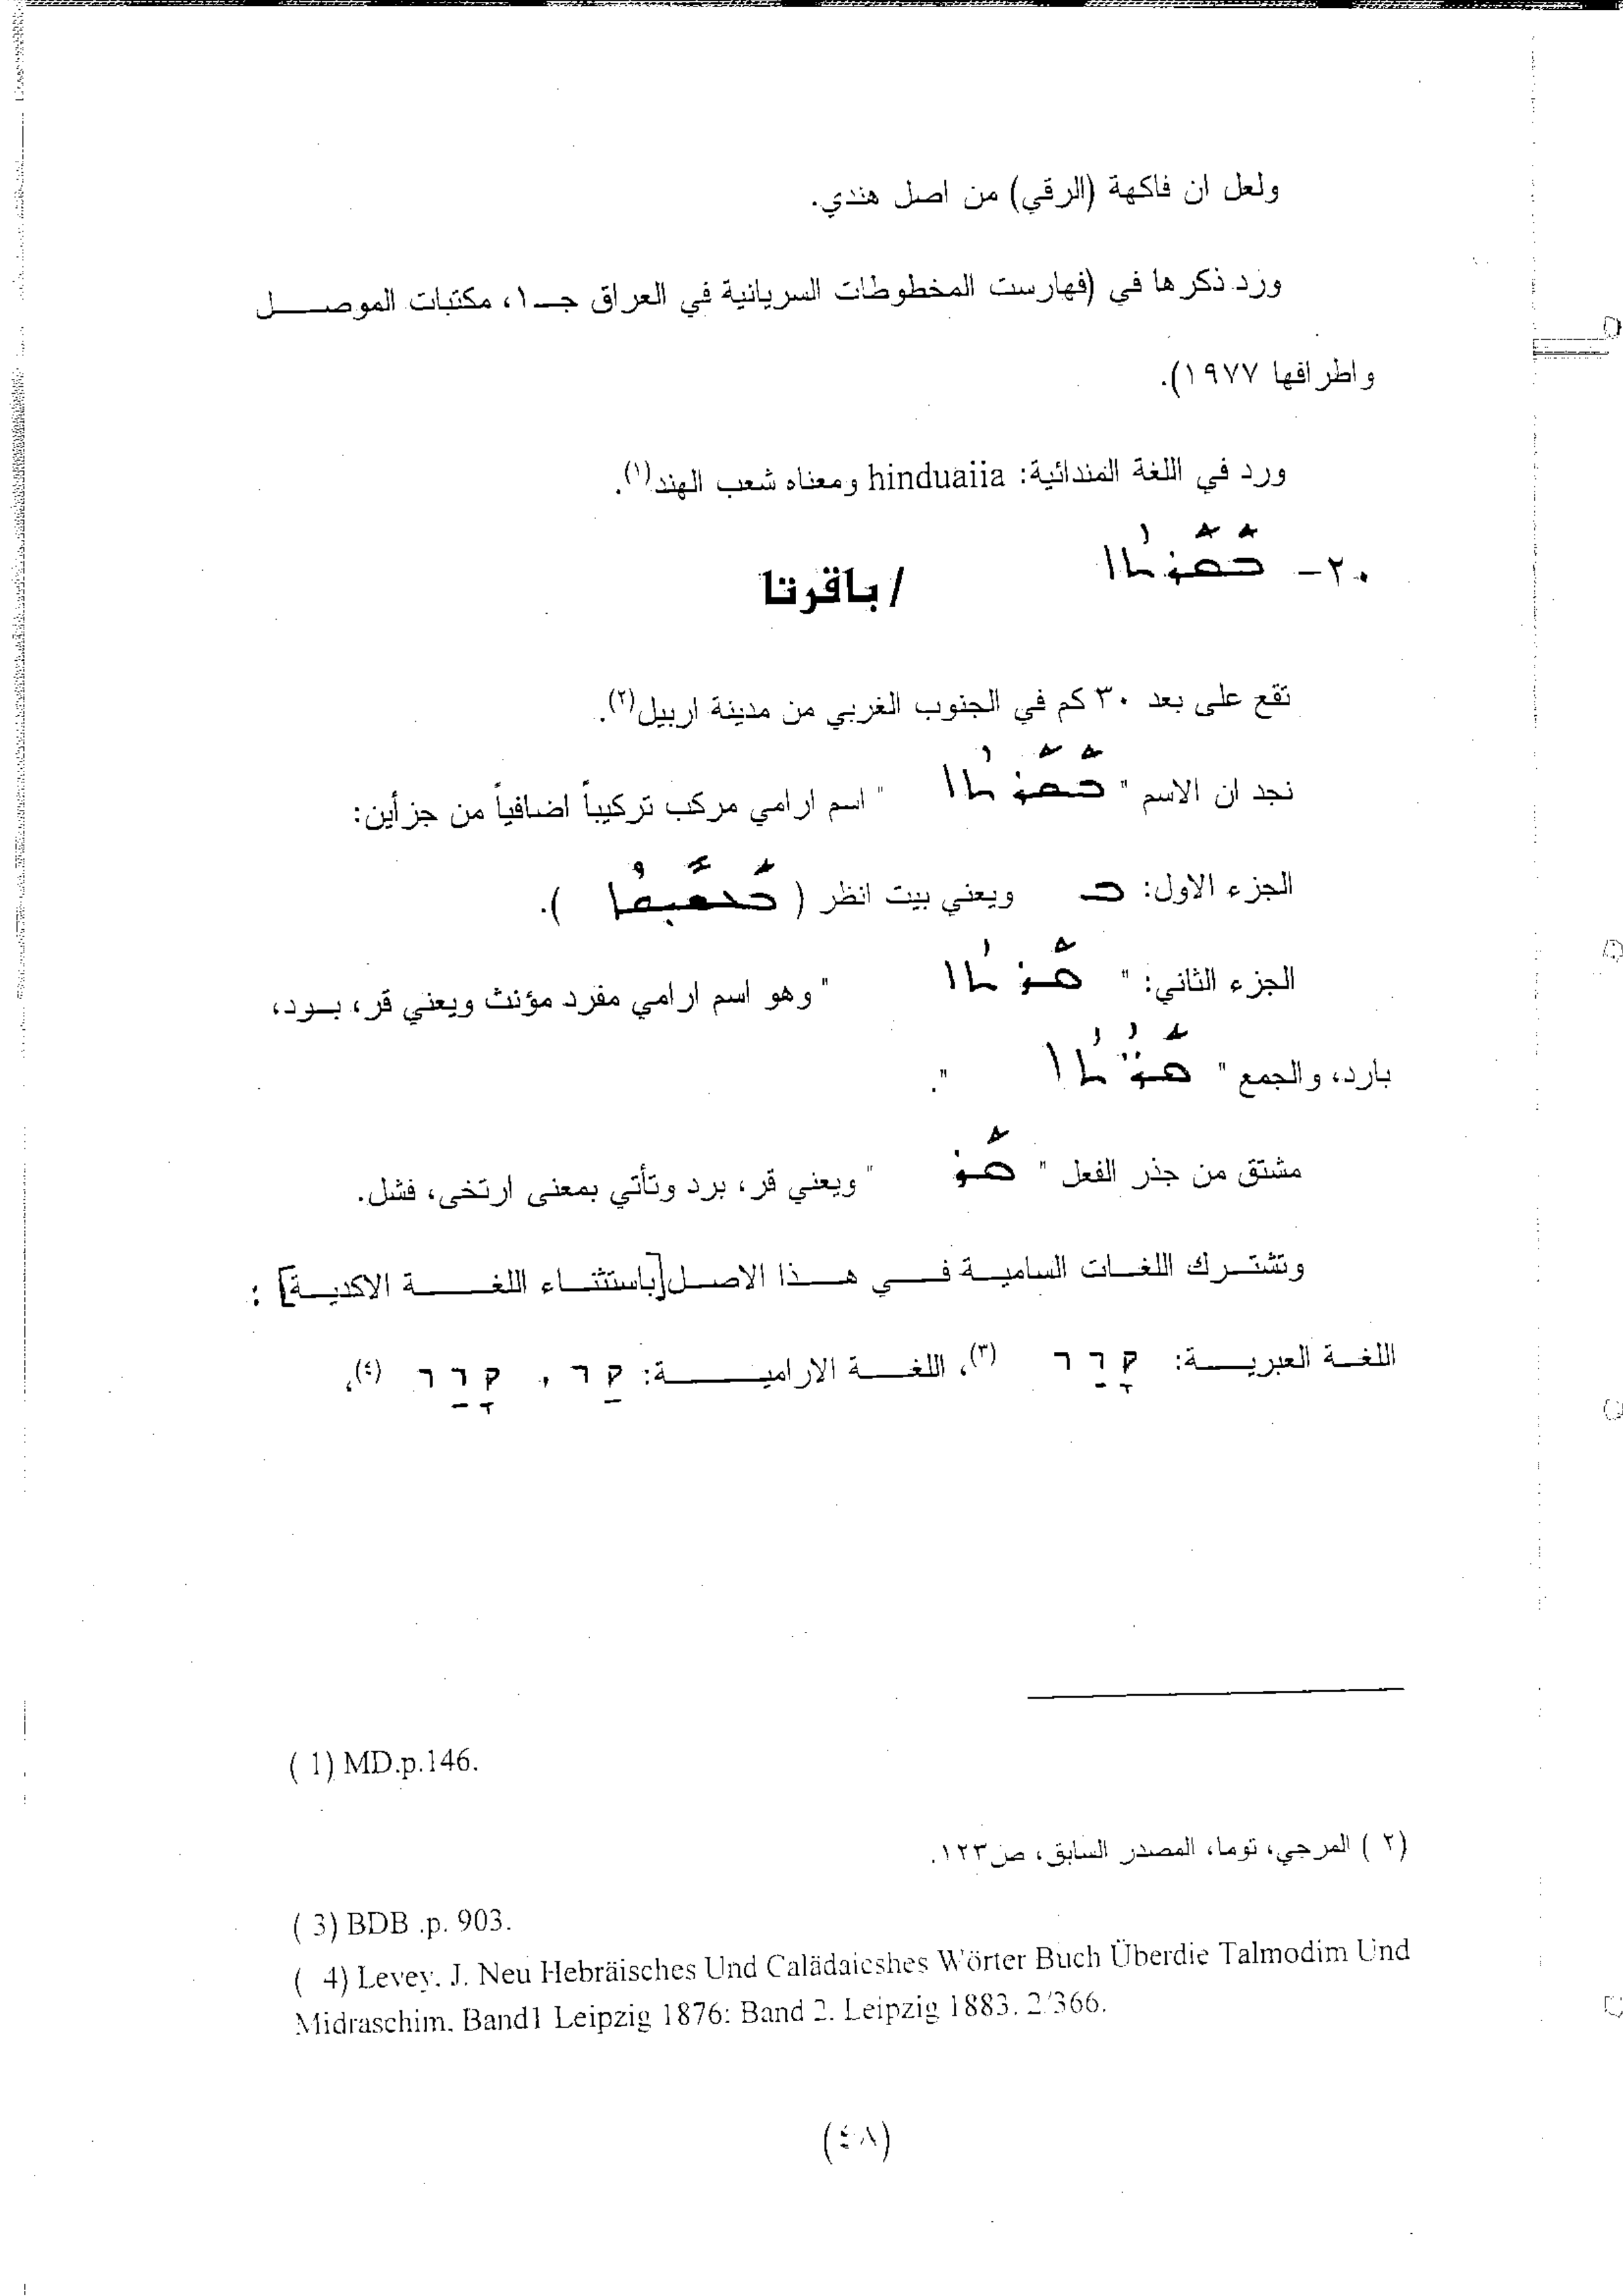 ولعل ان فاكهة (الرقي) من اصل هندي.
ورد ذكرها في (فهارست المخطوطات السريانية في العراق جـ١، مكتبات الموصـــــل
واطرافها ١٩٧٧).
ورد في اللغة المندائية: hinduaiia ومعناه شعب الهند(١).
٢٠- ܒܩܪܬܐ
/باقرتا
تقع على بعد ٣٠ كم في الجنوب الغربي من مدينة اربيل(٢).
نجد ان الاسم " ܒܩܪܬܐ " اسم ارامي مركب تركيباً اضافياً من جزأين:
الجزء الاول: ܒ ويعني بيت انظر ( ).
الجزء الثاني: " ܩܪܬܐ " وهو اسم ارامي مفرد مؤنث ويعني قر، بـــرد،
بارد، والجمع " ܩܪ̈ܬܐ ".
مشتق من جذر الفعل " ܩܪ " ويعني قر، برد وتأتي بمعنى ارتخى، فشل.
وتشتـــرك اللغـــات الساميـــة فـــــي هـــــذا الاصـــل[باستثنـــاء اللغـــــــة الاكديـــة] :
اللغـــة العبريـــــة: קָרַר (٣)، اللغـــــة الاراميـــــــــة: קַר , קָרַר (٤)،
( 1) MD.p.146.
(٢ ) المرجي، توما، المصدر السابق، ص١٢٣.
( 3) BDB .p. 903.
( 4) Levey. J. Neu Hebräisches Und Calädaicshes Wörter Buch Überdie Talmodim Und
Midraschim. Band1 Leipzig 1876: Band 2. Leipzig 1883. 2/366.
(٤٨)